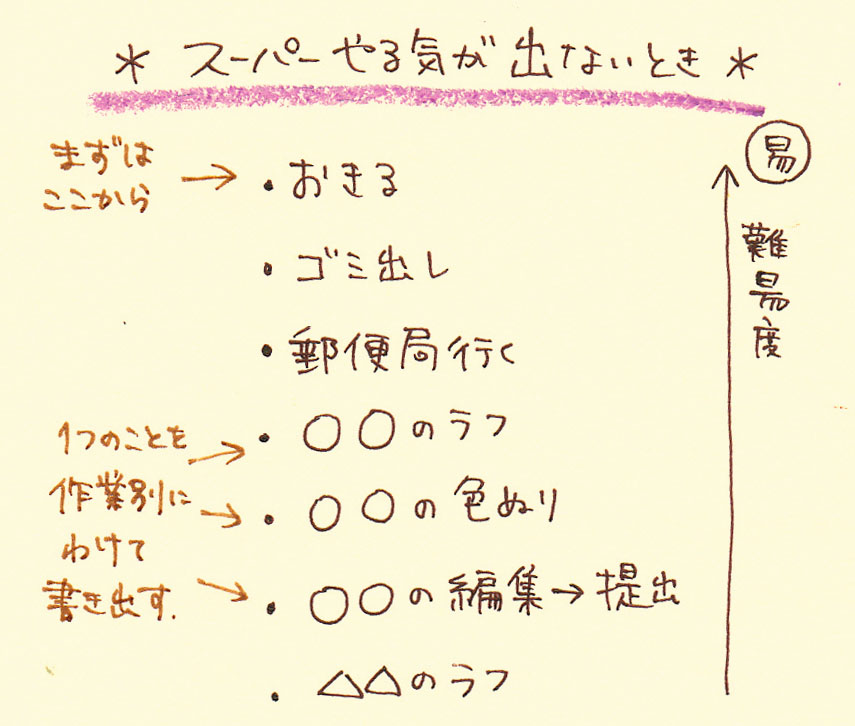 * スーパーやる気が出ないとき *
まずは
ここから
→ ・おきる
・ゴミ出し
・郵便局行く
1つのことを
作業別に
わけて
書き出す.
→ ・〇〇のラフ
→ ・〇〇の色ぬり
→ ・〇〇の編集→提出
・△△のラフ
易
難易度